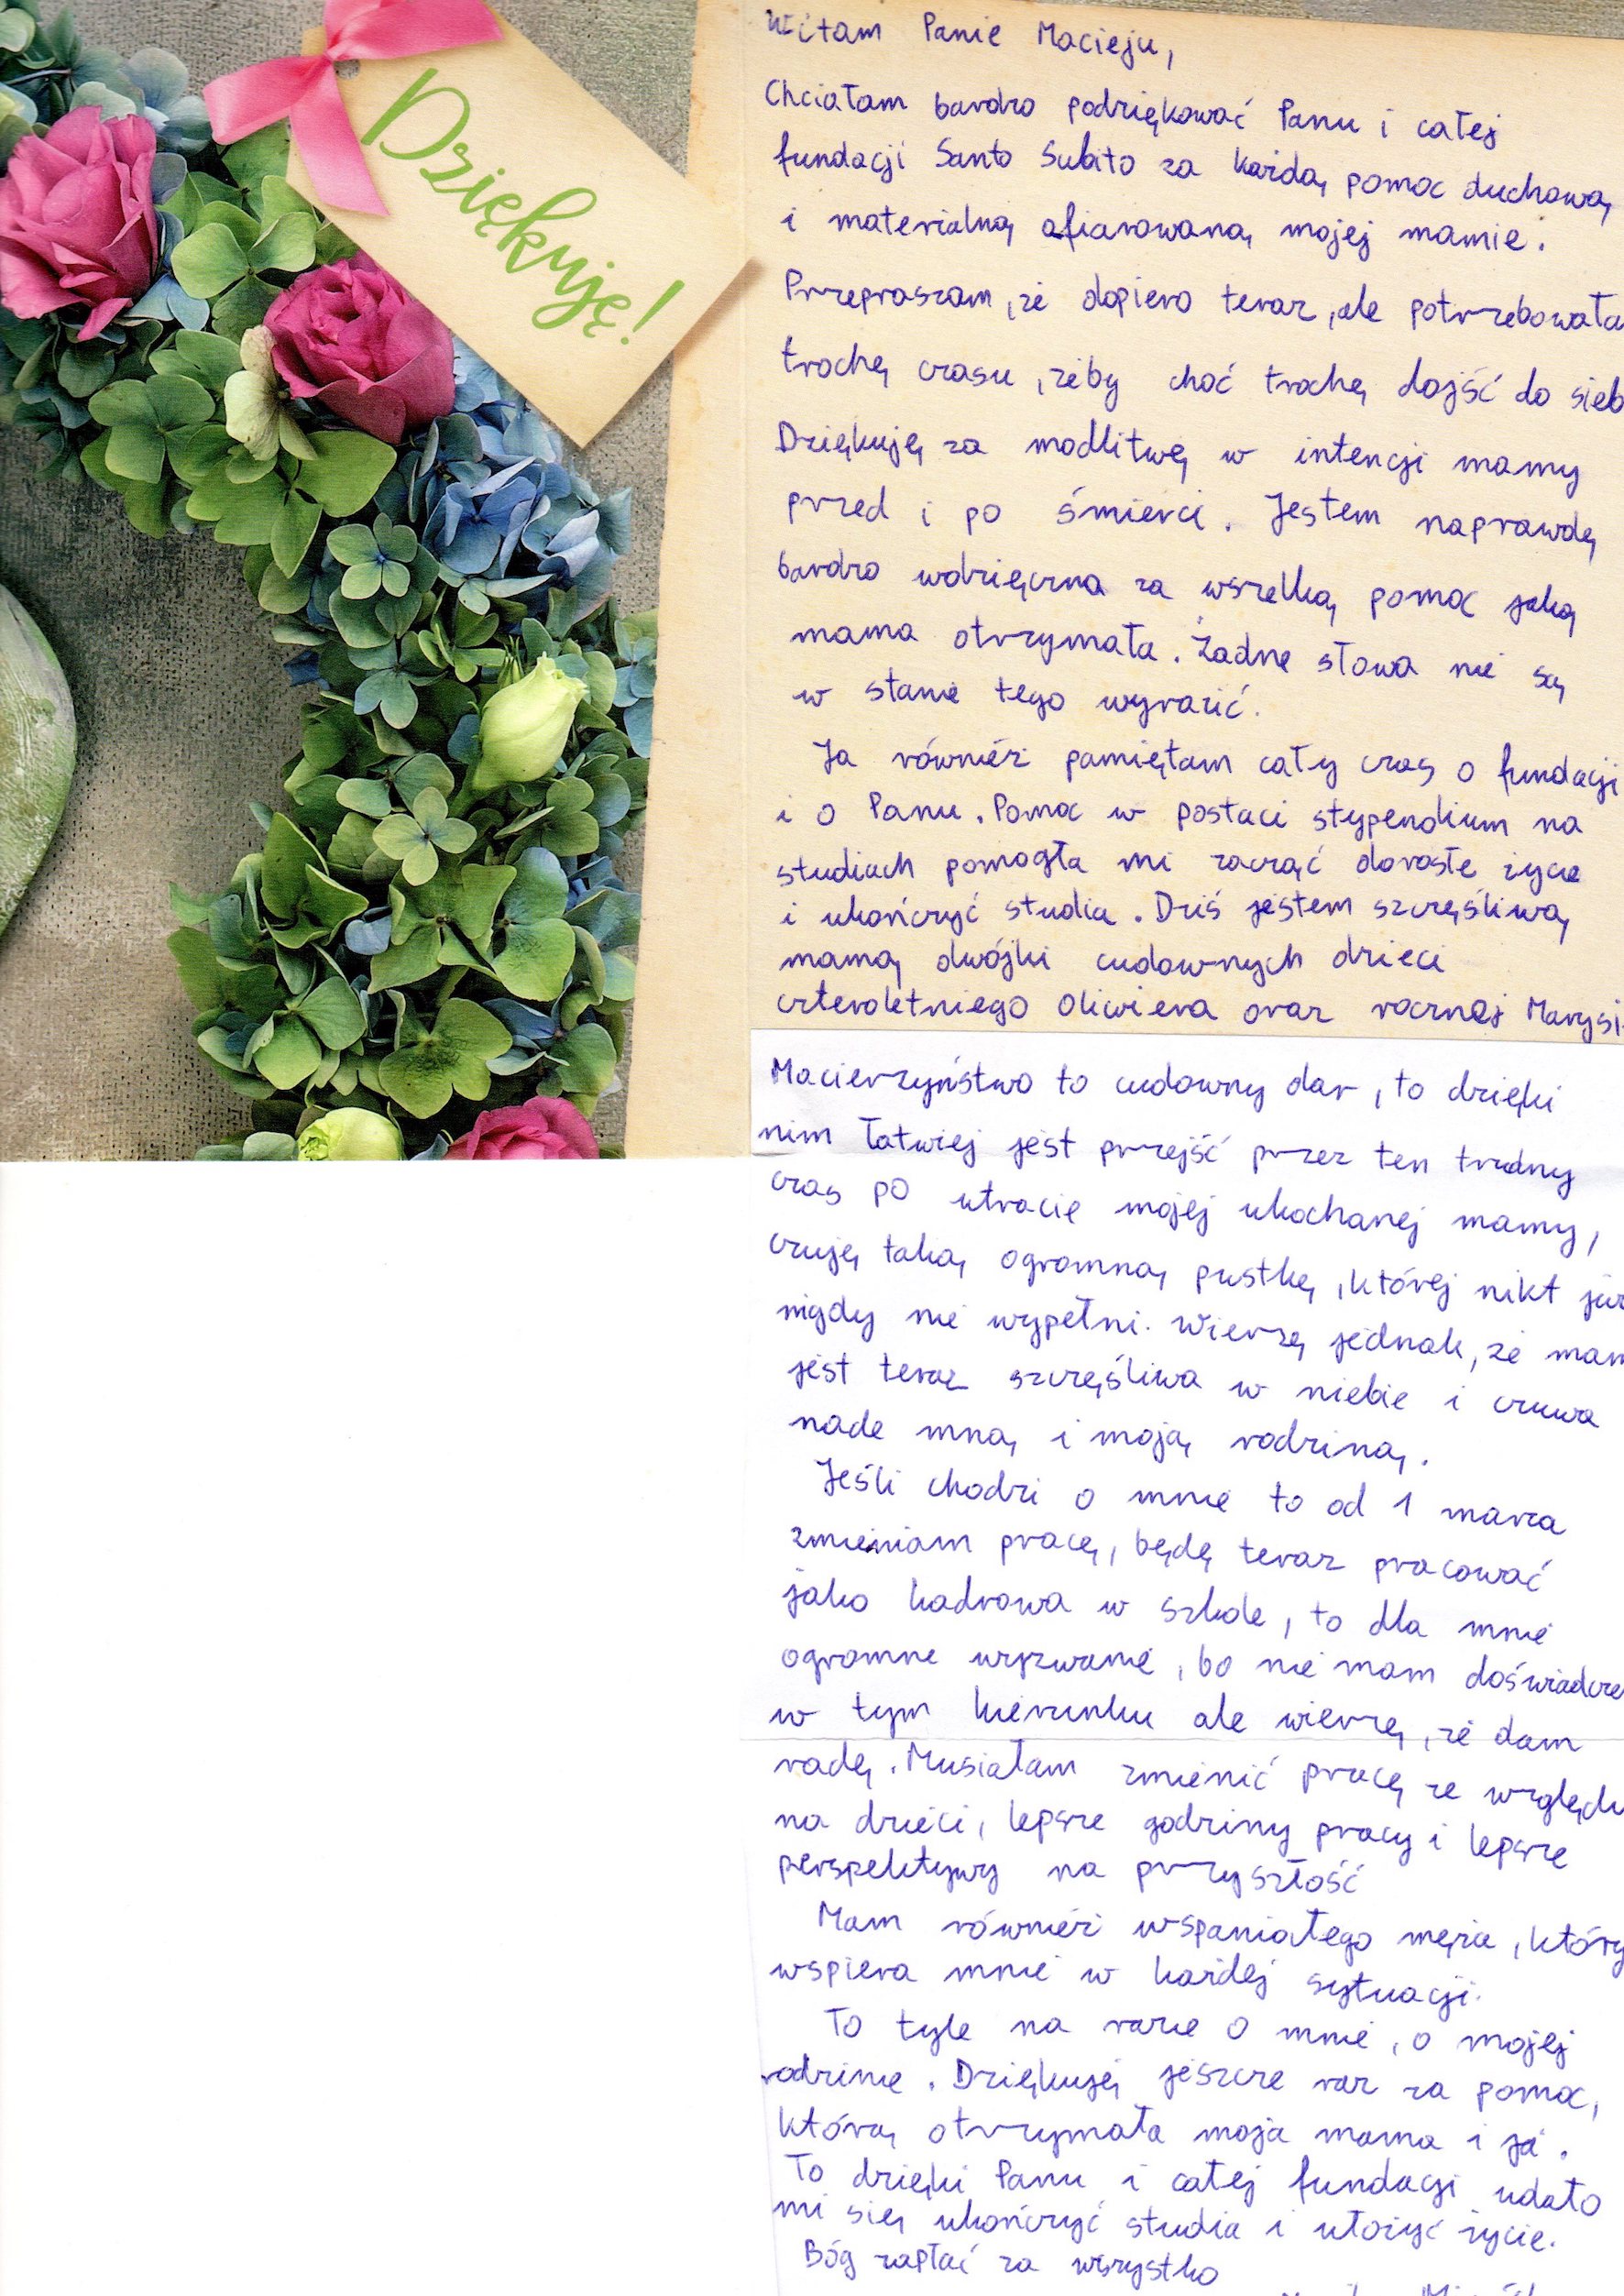 Dziękuję!
Witam Panie Macieju,
Chciałam bardzo podziękować Panu i całej
fundacji Santo Subito za każdą pomoc duchową
i materialną ofiarowaną mojej mamie.
Przepraszam, że dopiero teraz, ale potrzebowała
trochę czasu, żeby choć trochę dojść do sieb
Dziękuję za modlitwę w intencji mamy
przed i po śmierci. Jestem naprawdę
bardzo wdzięczna za wszelką pomoc jaką
mama otrzymała. Żadne słowa nie są
w stanie tego wyrazić.
Ja również pamiętam cały czas o fundacji
i o Panu. Pomoc w postaci stypendium na
studiach pomogła mi zacząć dorosłe życie
i ukończyć studia. Dziś jestem szczęśliwą
mamą dwójki cudownych dzieci
czteroletniego Oliwiera oraz rocznej Marysi
Macierzyństwo to cudowny dar, to dzięki
nim łatwiej jest przejść przez ten trudny
czas po utracie mojej ukochanej mamy,
czuję taką ogromną pustkę, której nikt już
nigdy nie wypełni. Wierzę jednak, że mam
jest teraz szczęśliwa w niebie i czuwa
nade mną i moją rodziną.
Jeśli chodzi o mnie to od 1 marca
zmieniam pracę, będę teraz pracować
jako kadrowa w szkole, to dla mnie
ogromne wyzwanie, bo nie mam doświadcze
w tym kierunku ale wierzę, że dam
radę. Musiałam zmienić pracę ze względu
na dzieci, lepsze godziny pracy i lepsze
perspektywy na przyszłość
Mam również wspaniałego męża, który
wspiera mnie w każdej sytuacji.
To tyle na razie o mnie, o mojej
rodzinie. Dziękuję jeszcze raz za pomoc,
którą otrzymała moja mama i ja.
To dzięki Panu i całej fundacji udało
mi się ukończyć studia i ułożyć życie.
Bóg zapłać za wszystko